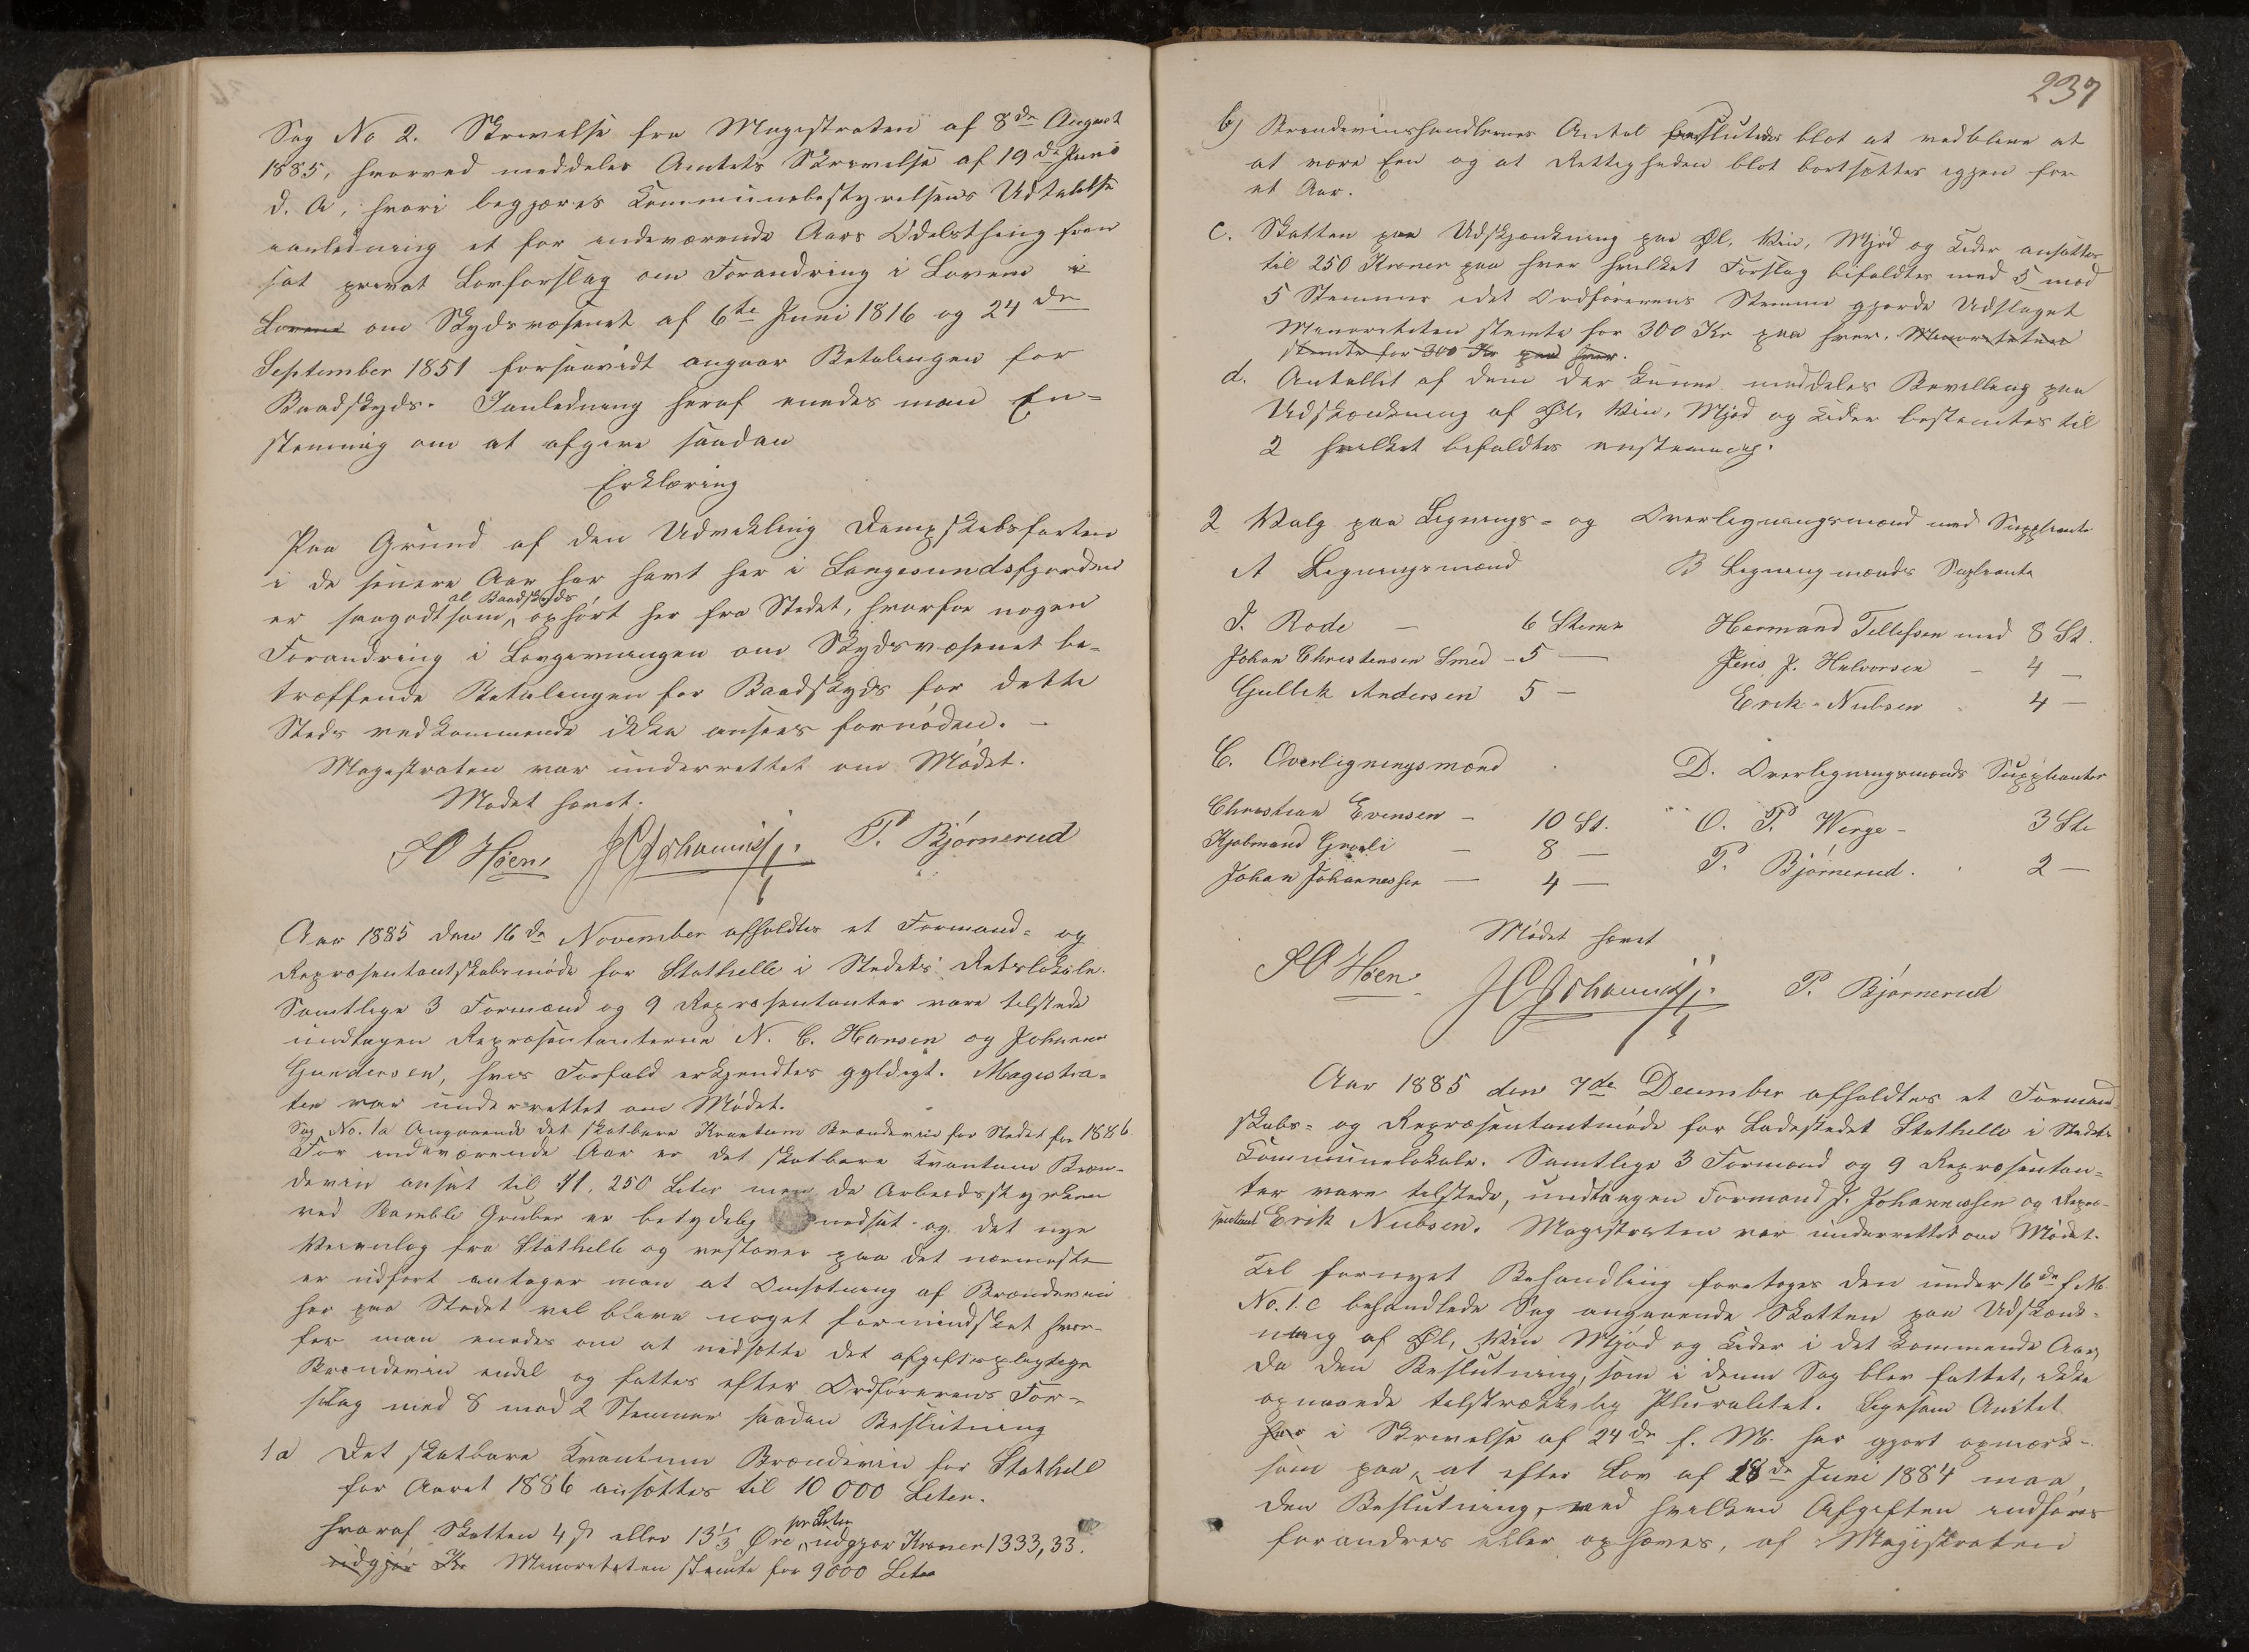 Sag No 2. Skrivelse fra Magistraten af 8de August
1885, hvorved meddeles Amtets Skrivelse af 19de Juni
d. A, hvori begjæres Kommunebestyrelsens Udtalelse
ianledning et for indeværende Aars Odelsthing frem
sat privat Lovforslag om Forandring i Lovene i
Lovene om Skydsvæsenet af 6te Juni 1816 og 24de
September 1851 forsaavidt angaar Betalingen for
Baadskyds. Ianledning heraf enedes man En-
stemmig om at afgive saadan
Erklæring
Paa Grund af den Udvikling Dampskibsfarten
i de senere Aar har havt her i Langesundsfjorden
er saagodtsom al Baadskyds ophørt her fra Stedet, hvorfor nogen
Forandring i Lovgivningen om Skydsvæsenet be-
træffende Betalingen for Baadskyds for dette
Steds vedkommende ikke ansees fornøden. –
Magistraten var underrettet om Mødet.
Mødet hævet.
Høen J C Johanness. P. Bjørnerud
Aar 1885 den 16de November afholdtes et Formand- og
Repræsentantskabsmøde for Stathelle i Stedets Retslokale.
Samtlige 3 Formænd og 9 Repræsentanter vare tilstede
undtagen Repræsentanterne N. C. Hansen og Johannes
Gundersen, hvis Forfald erkjendtes gyldigt. Magistra-
ten var underrettet om Mødet.
Sag No. 1a Angaaende det skatbare Kvantum Brændevin for Stedet for 1886
For indeværende Aar er det skatbare Kvantum Bræn-
devin ansat til 11,250 Liter men da Arbeidsstyrken
ved Bamble Gruber er betydelig nedsat og det nye
Veianlæg fra Stathelle og vestover paa det nærmeste
er udført antager man at Omsætning af Brændevin
her paa Stedet vil blive noget formindsket hvor-
for man enedes om at nedsætte det afgiftspligtige
Brændevin endel og fattes efter Ordførerens For-
slag med 8 mod 2 Stemmer saadan Beslutning
1a Det skatbare Kvantum Brændevin for Stathelle
for Aaret 1886 ansættes til 10 000 Liter.
hvoraf Skatten 4 s eller 13 1/3 Øre pr Liter udgjør Kroner 1333,33.
udgjør Kr Minoriteten stemte for 9000 Liter
237
b) Brændevinshandlernes Antal besluttedes blot at vedblive at
at være Een og at Rettigheden blot bortsættes igjen for
et Aar.
c. Skatten paa Udskjænkning paa Øl, Vin, Mjød og Cider ansættes
til 250 Kroner paa hver hvilket Forslag bifaldtes med 5 mod
5 Stemmer idet Ordførerens Stemme gjorde Udslaget
Minoriteten stemte for 300 Kr paa hver. Minoriteten
stemte for 300 Kr paa hver.
d. Antallet af dem der kunne meddeles Bevilling paa
Udskjænkning af Øl, Vin, Mjød og Cider bestemtes til
2 hvilket bifaldtes enstemmig.
2 Valg paa Lignings- og Overligningsmænd med Suppleanter
A Ligningsmænd B Ligningsmænds Supleanter
J. Rode – 6 Stemr Hermand Tellefsen med 8 St.
Johan Christensen Smed – 5 – Jens J. Halvorsen – 4 –
Gullik Andersen 5 – Erik Nielsen 4 –
C. Overligningsmænd D. Overligningsmænds Suppleanter
Christian Evensen – 10 St. O. T. Werge – 3 St
Kjøbmand Grønli – 8 – P. Bjørnerud. 2 –
Johan Johannessen – 4 –
Mødet hævet
Høen J C Johanness. P. Bjørnerud
Aar 1885 den 7de December afholdtes et Formand
skabs- og Repræsentantmøde for Ladestedet Stathelle i Stedets
Kommunelokale. Samtlige 3 Formænd og 9 Repræsentan-
ter vare tilstede, undtagen Formand J. Johannessen og Repræ-
sentant Erik Nielsen. Magistraten var underrettet om Mødet.
Til fornyet Behandling foretoges den under 16de f. M.
No. 1.c behandlede Sag angaaende Skatten paa Udskjænk-
ning af Øl, Vin Mjød og Cider i det kommende Aar,
da den Beslutning, som i denne Sag blev fattet, ikke
opnaaede tilstrækkelig Pluralitet. Ligesom Amtet
har i Skrivelse af 24de f. M. har gjort opmærk-
som paa, at efter Lov af 28de Juni 1884 maa,
den Beslutning, ved hvilken Afgiften indføres
forandres eller ophæves, af Magistraten